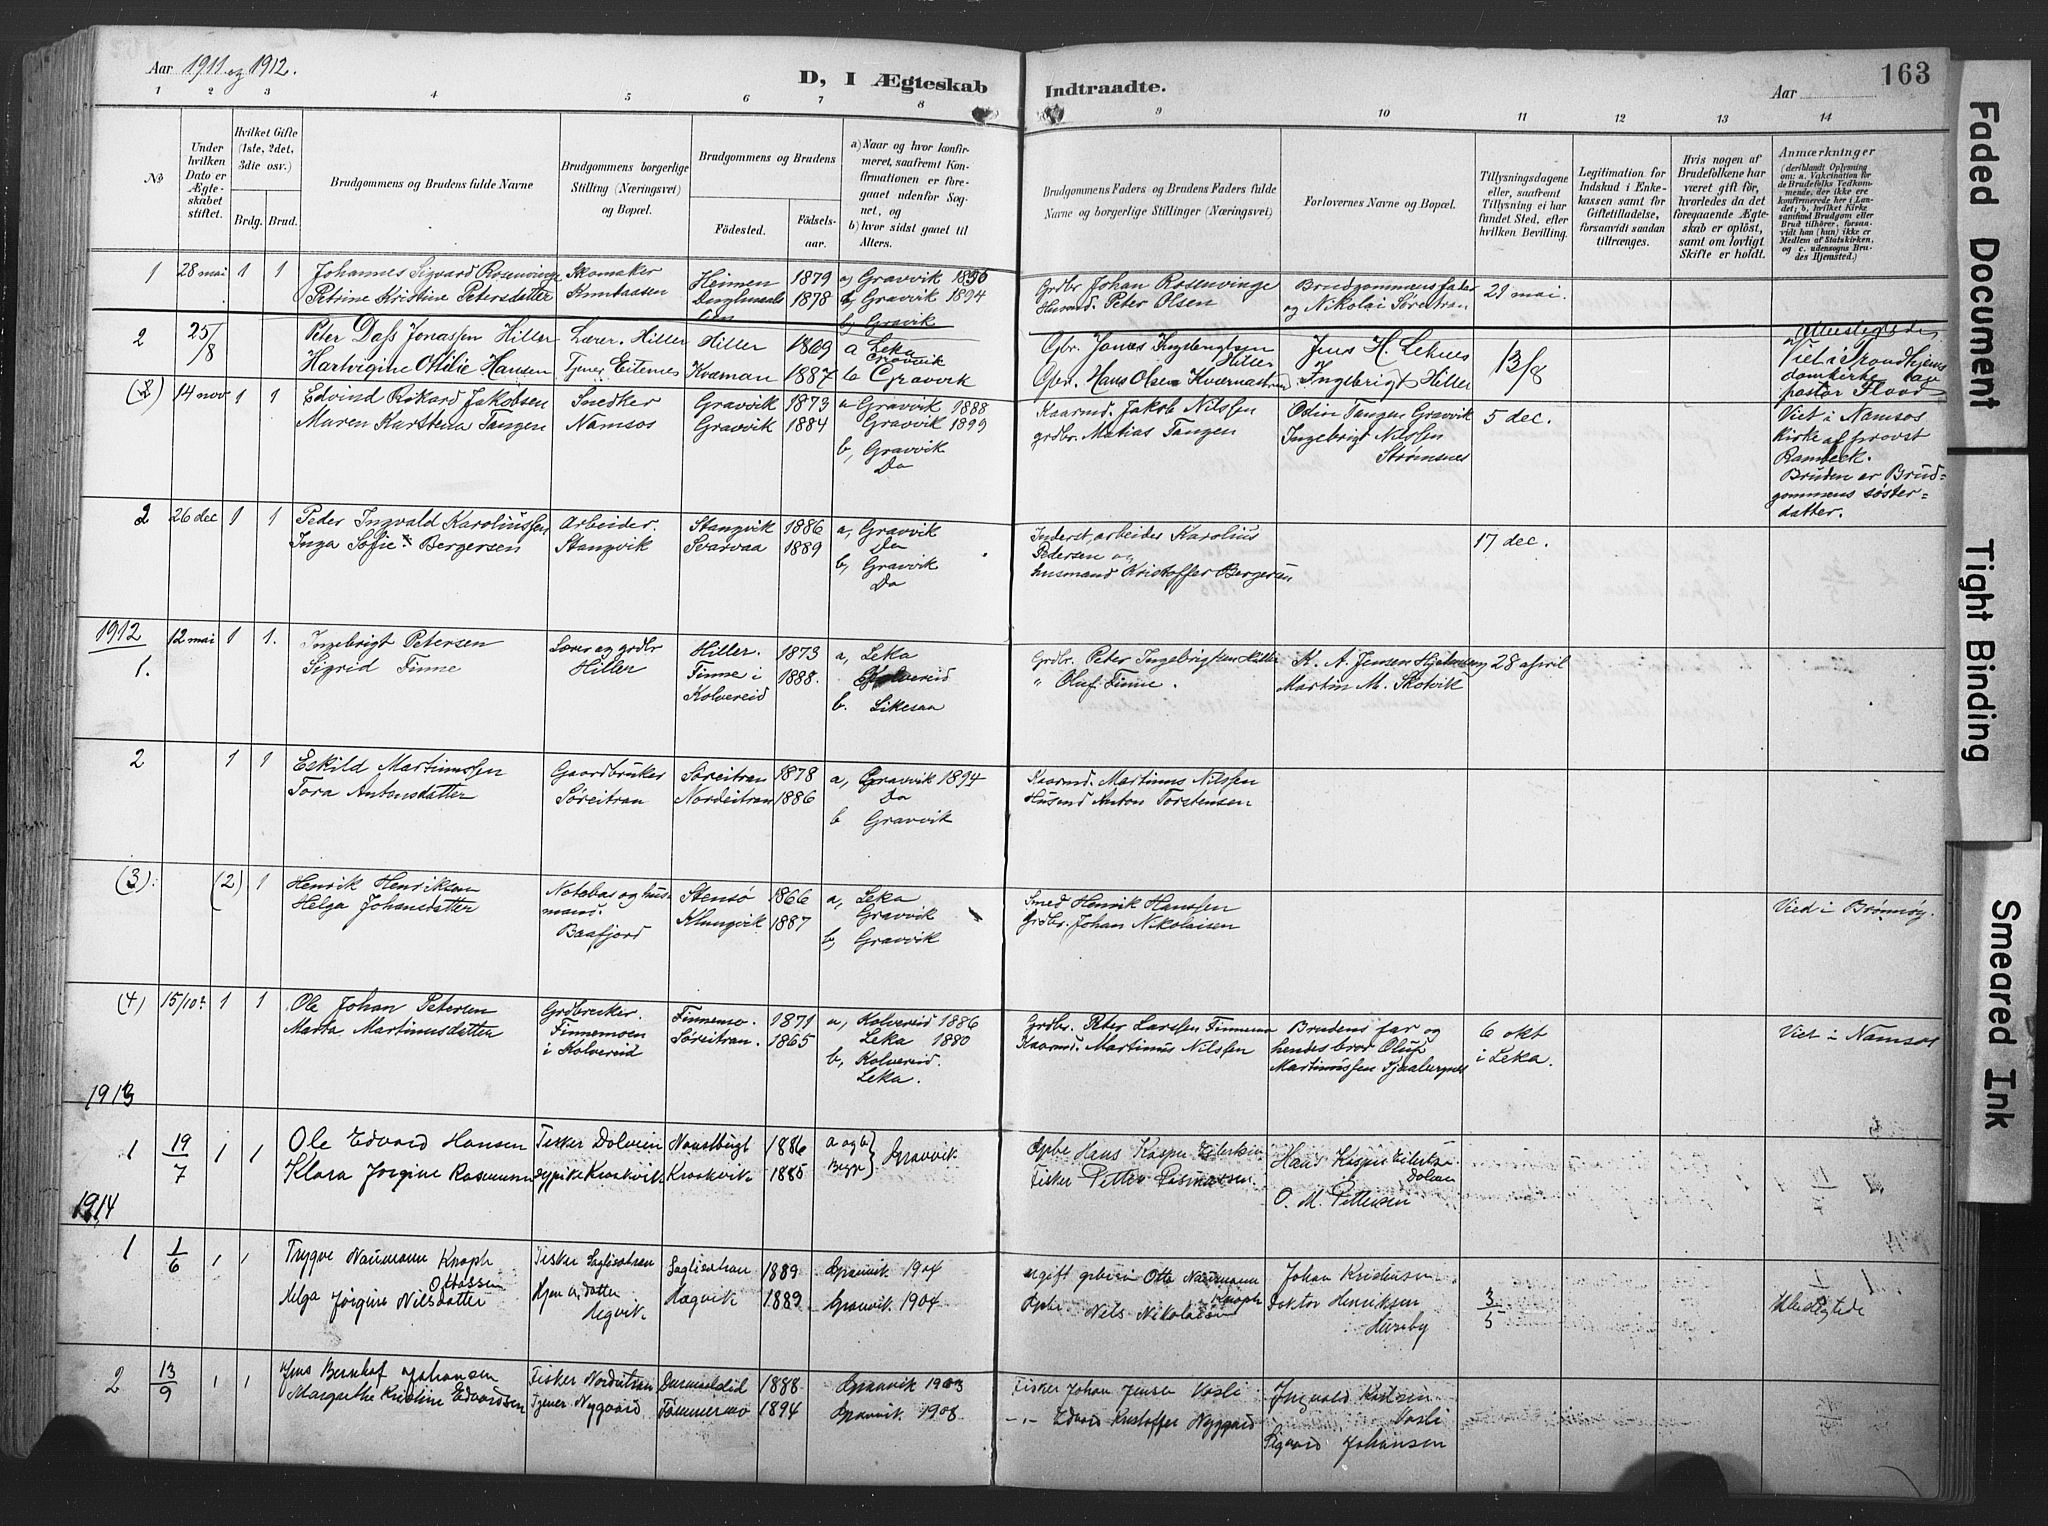 Aar 1911 og 1912.
D, I Ægteskab
Indtraadte.
Aar
163
1 2 3 4 5 6 7 8 9 10 11 12 13 14
No
Under hvilken Dato er Ægteskabet stiftet.
Hvilket Gifte (1ste, 2det, 3die osv.)
Brdg. Brud.
Brudgommens og Brudens fulde Navne
Brudgommens borgerlige Stilling (Næringsvei) og Bopæl.
Brudgommens og Brudens
Fødested. Fødselsaar.
a) Naar og hvor konfirmeret, saafremt Konfirmationen er foregaaet udenfor Sognet, og
b) hvor sidst gaaet til Alters.
Brudgommens Faders og Brudens Faders fulde Navne og borgerlige Stillinger (Næringsvei)
Forlovernes Navne og Bopæl.
Tillysningsdagene eller, saafremt Tillysning ei har fundet Sted, efter hvilken Bevilling.
Legitimation for Indskud i Enkekassen samt for Giftetilladelse, forsaavidt saadan tiltrænges.
Hvis nogen af Brudefolkene har været gift før, hvorledes da det foregaaende Ægteskab er opløst, samt om lovligt Skifte er holdt.
Anmærkninger
(deriblandt Oplysning om: a. Vakcination for de Brudefolks Vedkommende, der ikke ere konfirmerede her i Landet; b. hvilket Kirkesamfund Brudgom eller Brud tilhører, forsaavidt han (hun) ikke er Medlem af Statskirken, og c. udensogns Brudes Hjemsted.)
1 28 mai 1 1 Johannes Sigvard Rosenvinge Skomaker Heimen 1879 a) Gravvik
Petrine Kristine Petersdatter 1878 Gravvik 1894
b) Gravik
Grdbr Johan Rosenvinge Brudgommens fader 21 mai.
Husmd. Peter Olsen og Nikolai Søreitran
2 25/8 Peter Dass Jonassen Hiller Lærer. Hiller Hiller 1869 a Leka
Gravvik
Hartvigine Otilie Hansen Tjener Kvæman 1887 b Gravvik
Gbr. Jonas Ingebrigtsen Hiller Jens H. Lehnes 13/8
Gbr. Hans Olsen Kvernastran Ingebrigt Hiller
Viet i Trondhjems domkirke
14 nov 1 1 Edvind Rikard Jakobsen Snedker Gravvik 1873 a Gravvik 1888
Maren Karstena Tangen Namsos Gravvik 1884 Gravvik 1899
b, Gravvik
Do
Kaarmd. Jakob Nilssen Odin Tangen Gravvik 5 dec.
grdbr. Matias Tangen Ingebrigt Nilssen
Strømsnes
Viet i Namsos
Kirke af provst
Bambeck.
Bruden er Brudgommens søsterdatter.
2 26 dec 1 1 Peder Ingvald Karoliussen Arbeider. Stangvik 1886 a, Gravvik
Inga Sofie Bergersen Stangvik Svarvaa 1889 Do
b, Gravvik
Do
Inderst, arbeider Karolius 17 dec.
Pedersen og
husmand Kristoffer Bergersen
1912
1. 12 mai 1 1. Ingebrigt Petersen Lærer og grdbr Hiller. 1873 a, Leka
Sigrid Finne Hiller Finne i 1888. Kolvereid
Kolvereid b. Likesaa
Grdbr. Peter Ingebrigtsen Hiller K. A. Jensen 28 april
" Oluf Finne. Martin M. Skotvik
2 1 1 Eskild Martinussen Gaardbruker Søreitran 1878 a, Gravvik 1894
Tora Antonsdatter Søreitran Nordeitran 1886 Do
b Gravvik
Kaarmd. Martinus Nilssen
Husmd Anton Torstensen
(3). (2) 1 Henrik Henriksen Notebas og husmand. Stensø 1866 a, Leka
Helga Johansdatter Baafjord Klungvik 1887 Gravvik
b, Gravvik
Smed Henrik Hanssen Vied i Brønnøy.
grdbr. Johan Nikolaisen
(4) 15/10 1 1 Ole Johan Petersen Grdbruker. Finnemo. 1871 a, Kolvereid 1886
Marta Martinusdatter Finnemoen Søreitran. 1865 Leka 1880
i Kolvereid b, Kolvereid.
Leka.
Grdbr. Peter Larssen Finnemo Brudens far og 6 okt Viet i Namsos
Kaarmd. Martinus Nilssen hendes bror Oluf i Leka.
Martinussen
1913
1 19/7 1 1 Ole Edvard Hansen Fisker Dolveien 1886 a og b Gravvik
Klara Jørgine Rasmussen Kraakvik 1885 Begge
Gbr Hans Kasper Eilertsen Hans Kasper Eilertsen
Dolvien
Fisker Petter Rasmussen. O. M. Pettersen
1914
1 1/6 1 1 Trygve Naumann Knoph Fisker 1889 Gravvik 1904
Ottossen
Helga Jørgine Nilsdatter Hægvik 1889 Gravvik. 1904
Otto Naumann Knoph Johan Kristensen 3/5
Gbr Nils Nikolaisen Doktor Henriksen
2 13/9 1 1 Jens Bernhof Johansen Fisker Nordeitran 1888 Gravvik 1903
Margarethe Kristine Edvardsen Tjener Nygaard Tømmermo 1894 Gravvik. 1908
Fisker Johan Jensen Vasli Ingvald Karlsen
Vasli
-"- Edvard Kristoffer Nyggard Sigvard Johansen
Faded Document
Tight Binding
Smeared Ink